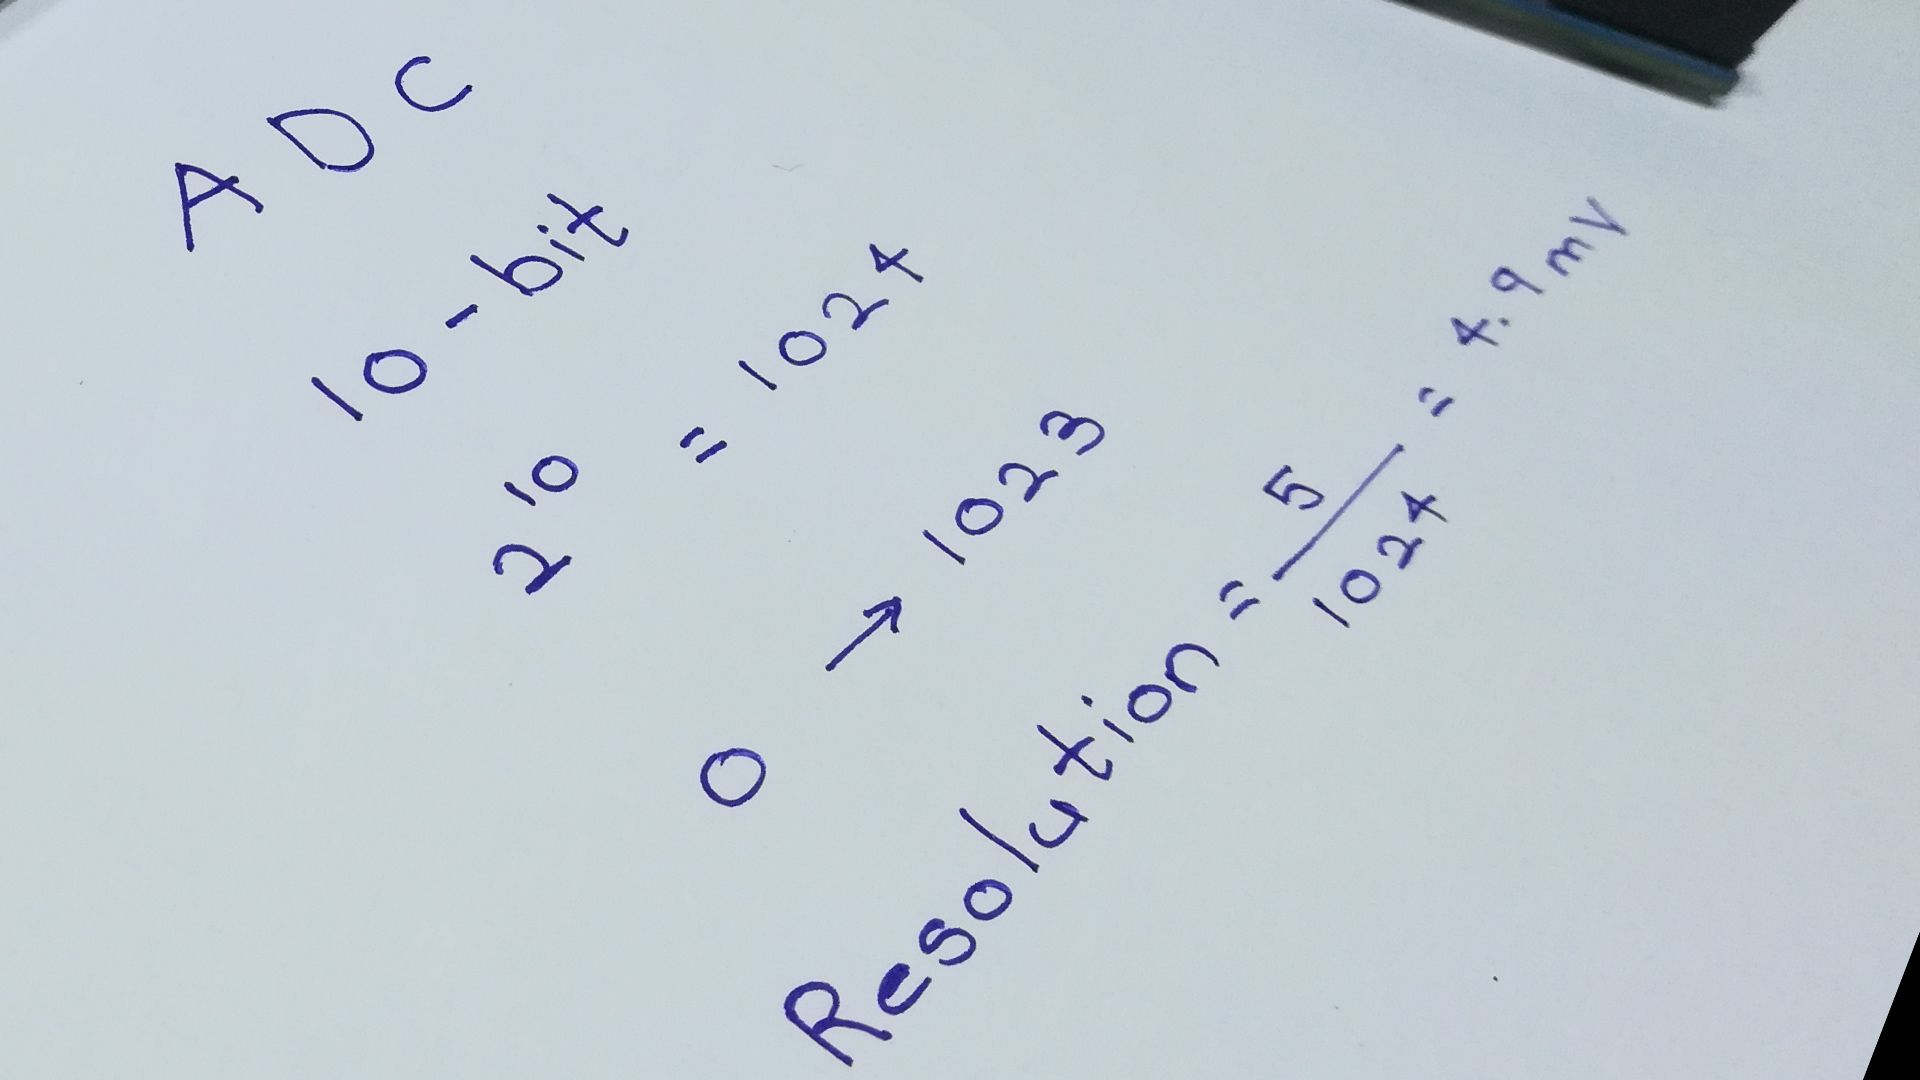 ADC
10-bit
2¹⁰ = 1024
0 → 1023
Resolution = 5/1024 = 4.9mV